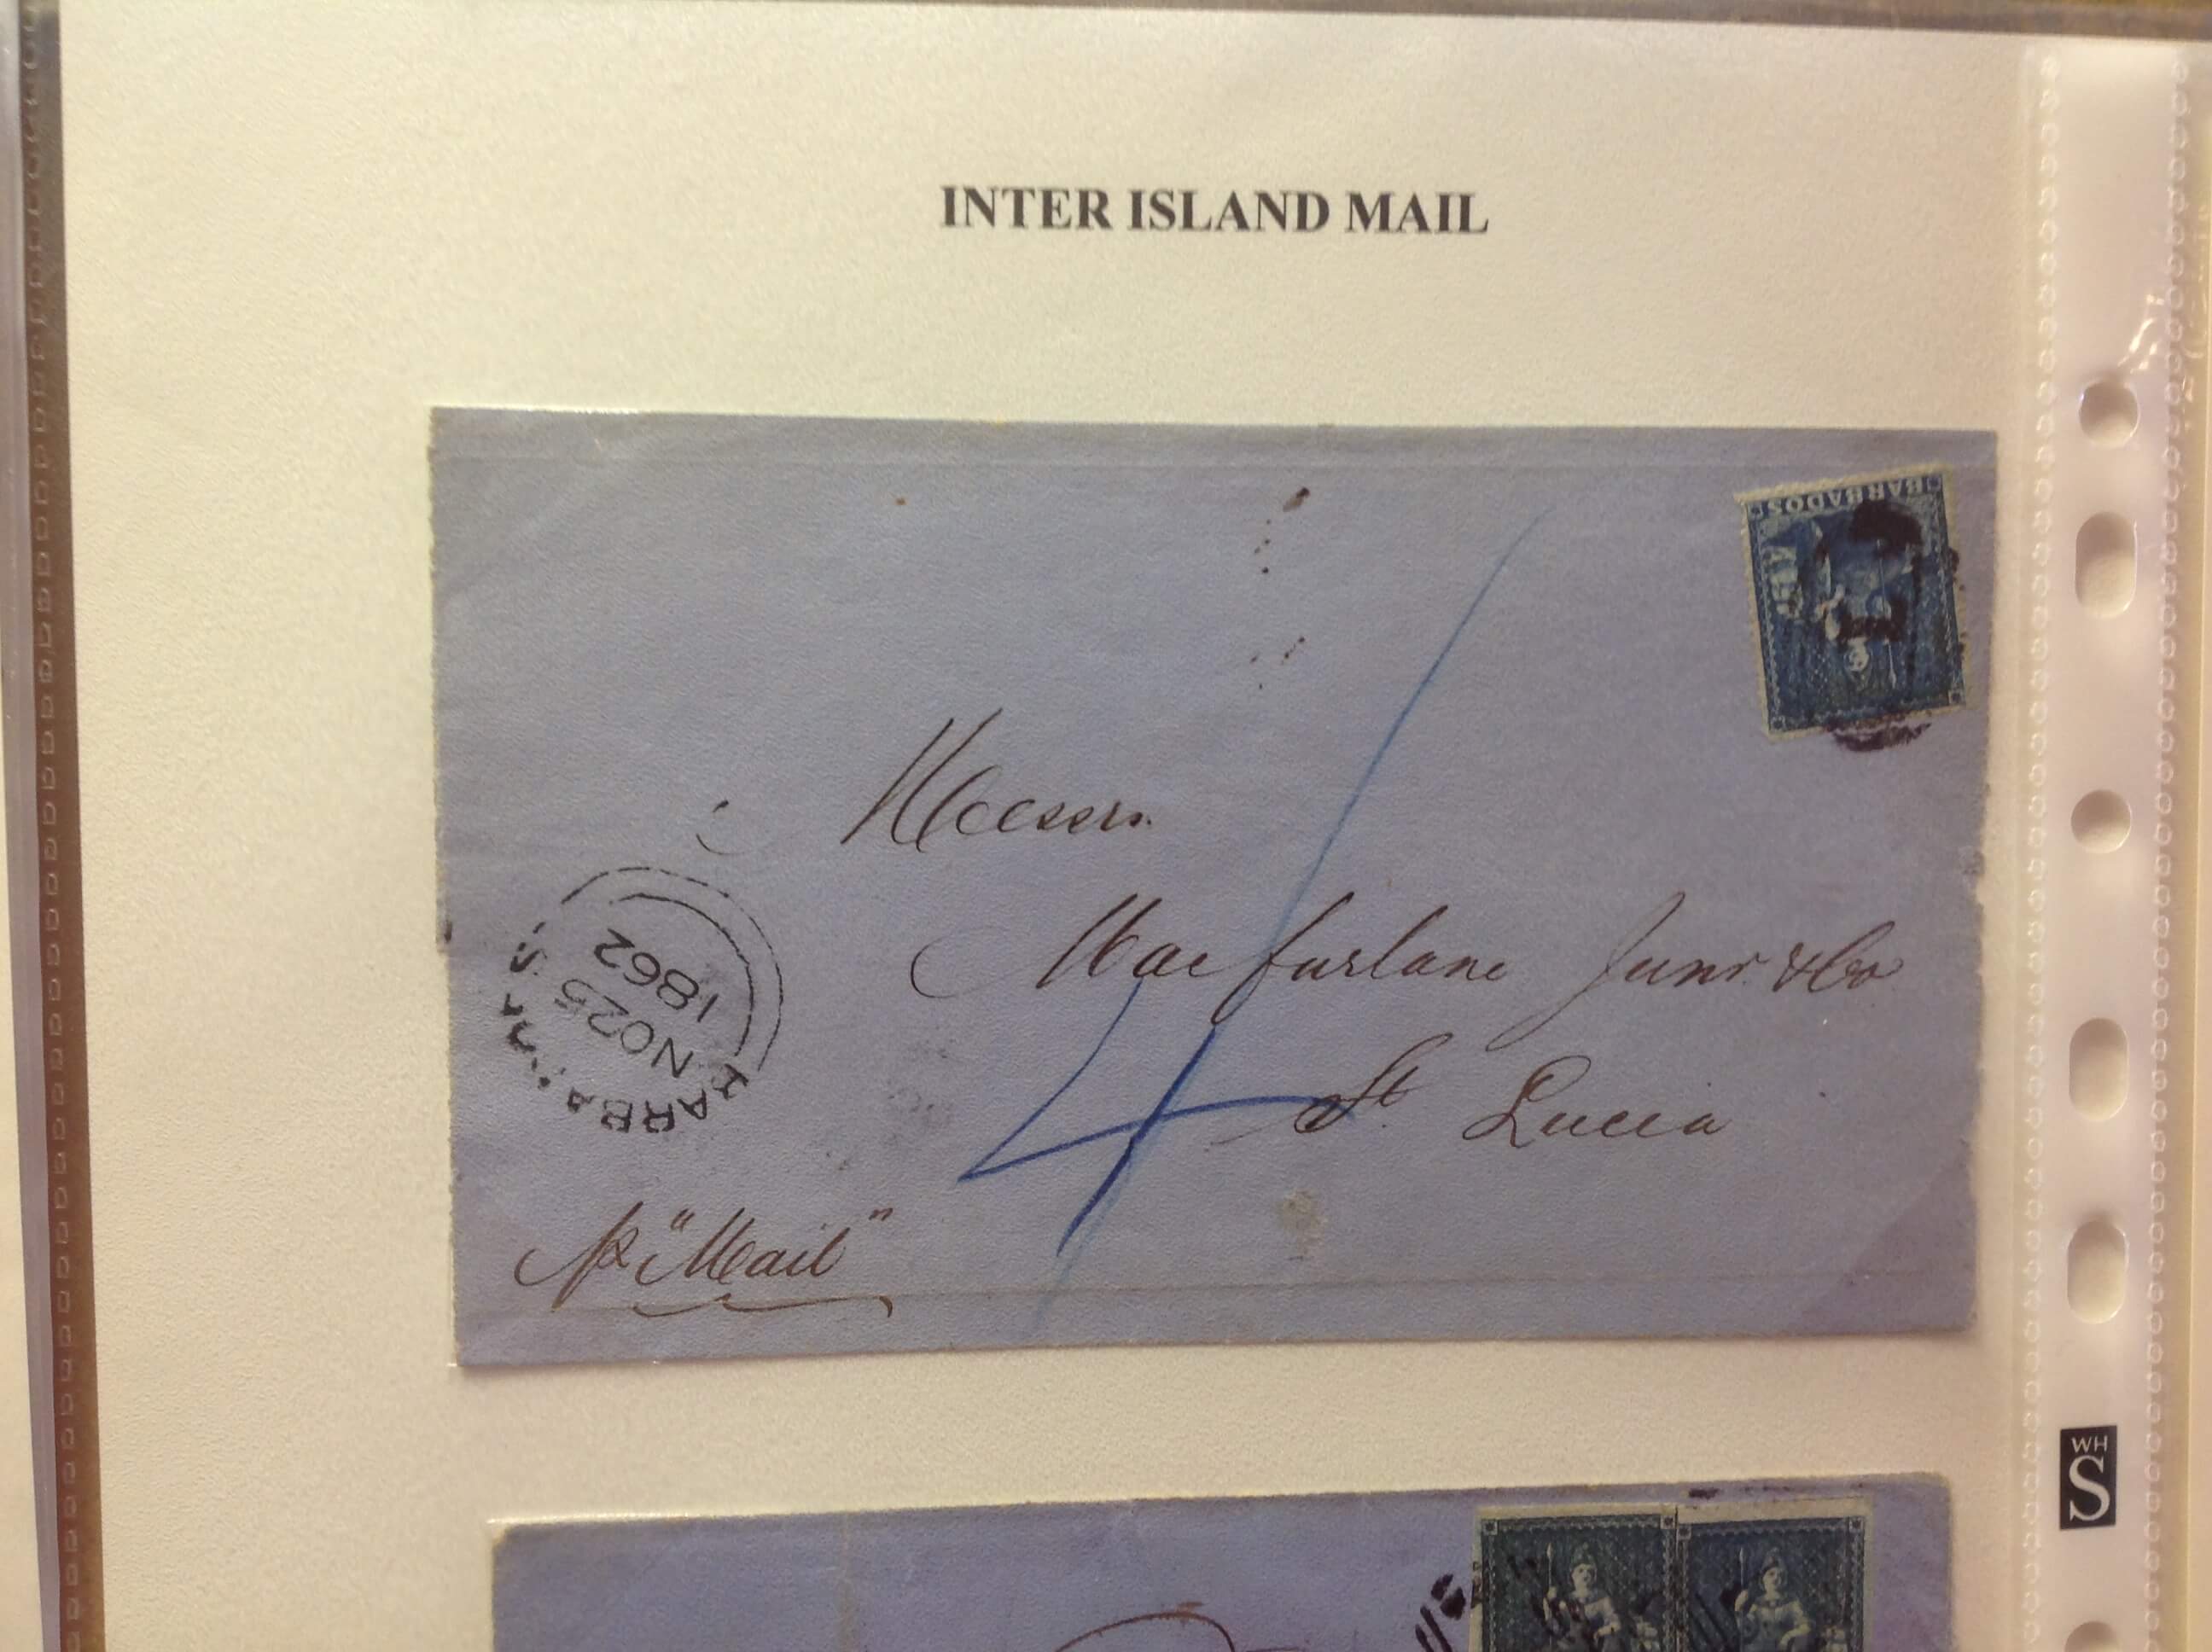 INTER ISLAND MAIL
BARBADOS
Messrs.
Macfarlane Junr. & Co
BARBADOS
NO 25
1862
4
St. Lucia
pr "Mail"
WH
S